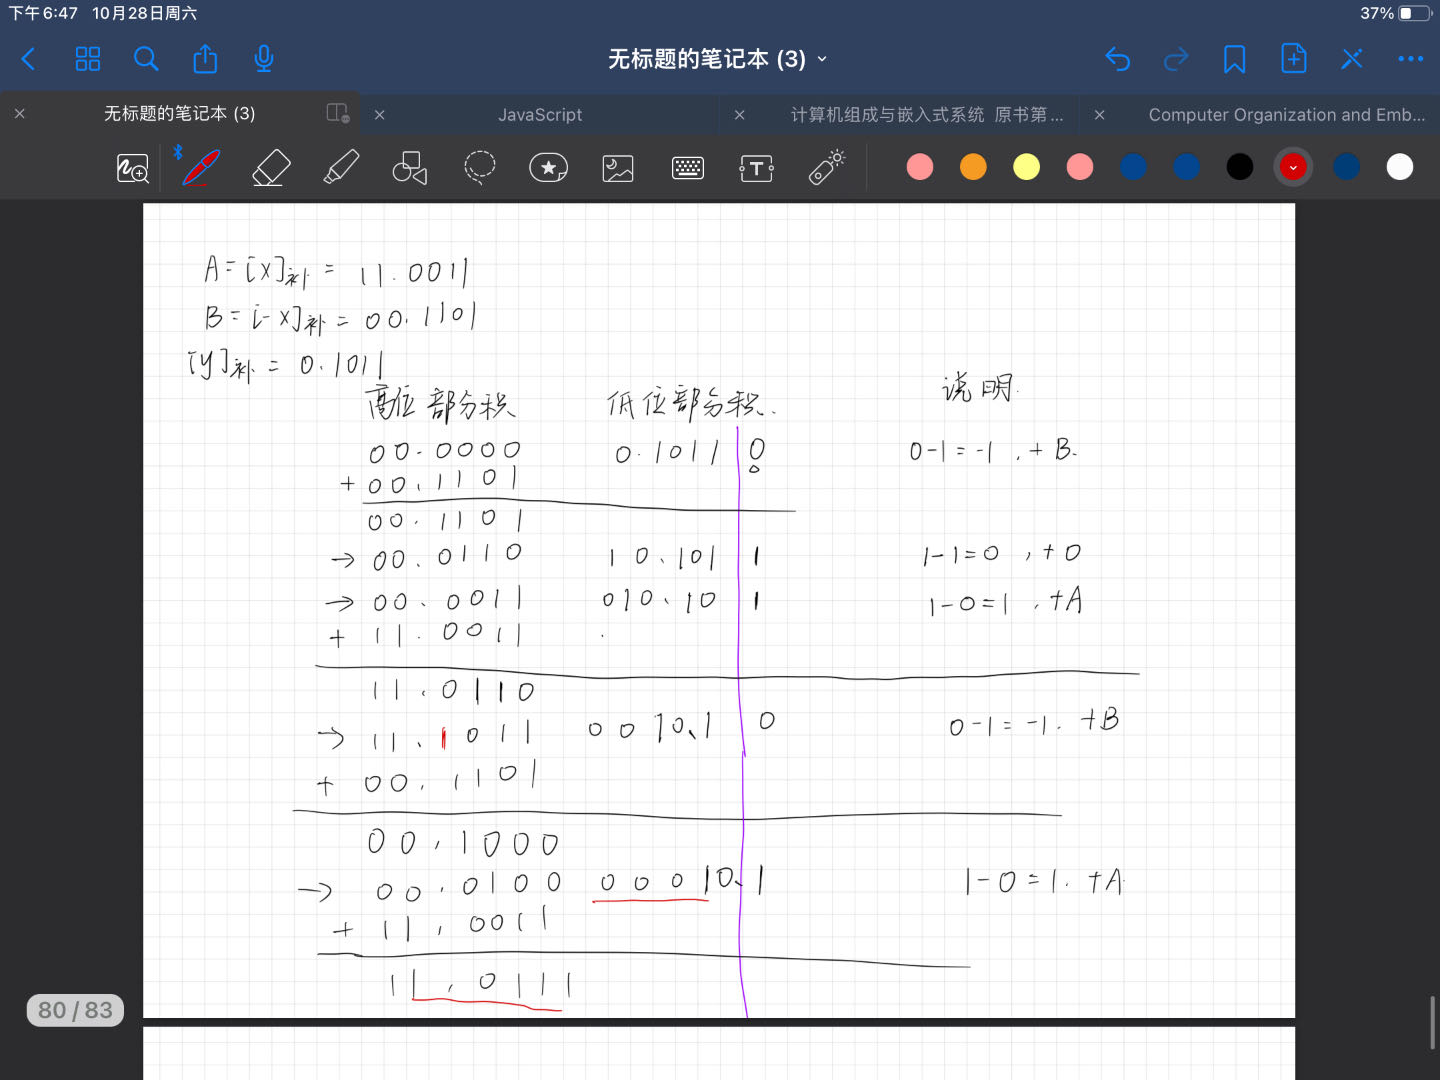 下午6:47 10月28日周六 37%
无标题的笔记本 (3)
无标题的笔记本 (3) JavaScript 计算机组成与嵌入式系统 原书第... Computer Organization and Emb...
A=[X]补 = 11.0011
B=[-X]补 = 00.1101
[y]补 = 0.1011
高位部分积 低位部分积. 说明.
00.0000 0.1011 0 0-1=-1 , + B.
+ 00.1101
00.1101
→ 00.0110 10.101 1 1-1=0 , +0
→ 00.0011 010.10 1 1-0=1 , +A
+ 11.0011
11.0110
→ 11.1011 0010.1 0 0-1=-1. +B
+ 00.1101
00.1000
→ 00.0100 00010.1 1-0=1. +A
+ 11.0011
11.0111
80 / 83